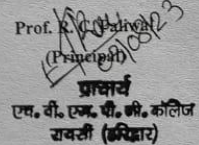 Prof. R. C. Paliwal
(Principal)
प्राचार्य
एच. वी. एम. पी. जी. कॉलिज
रायसी (हरिद्वार)